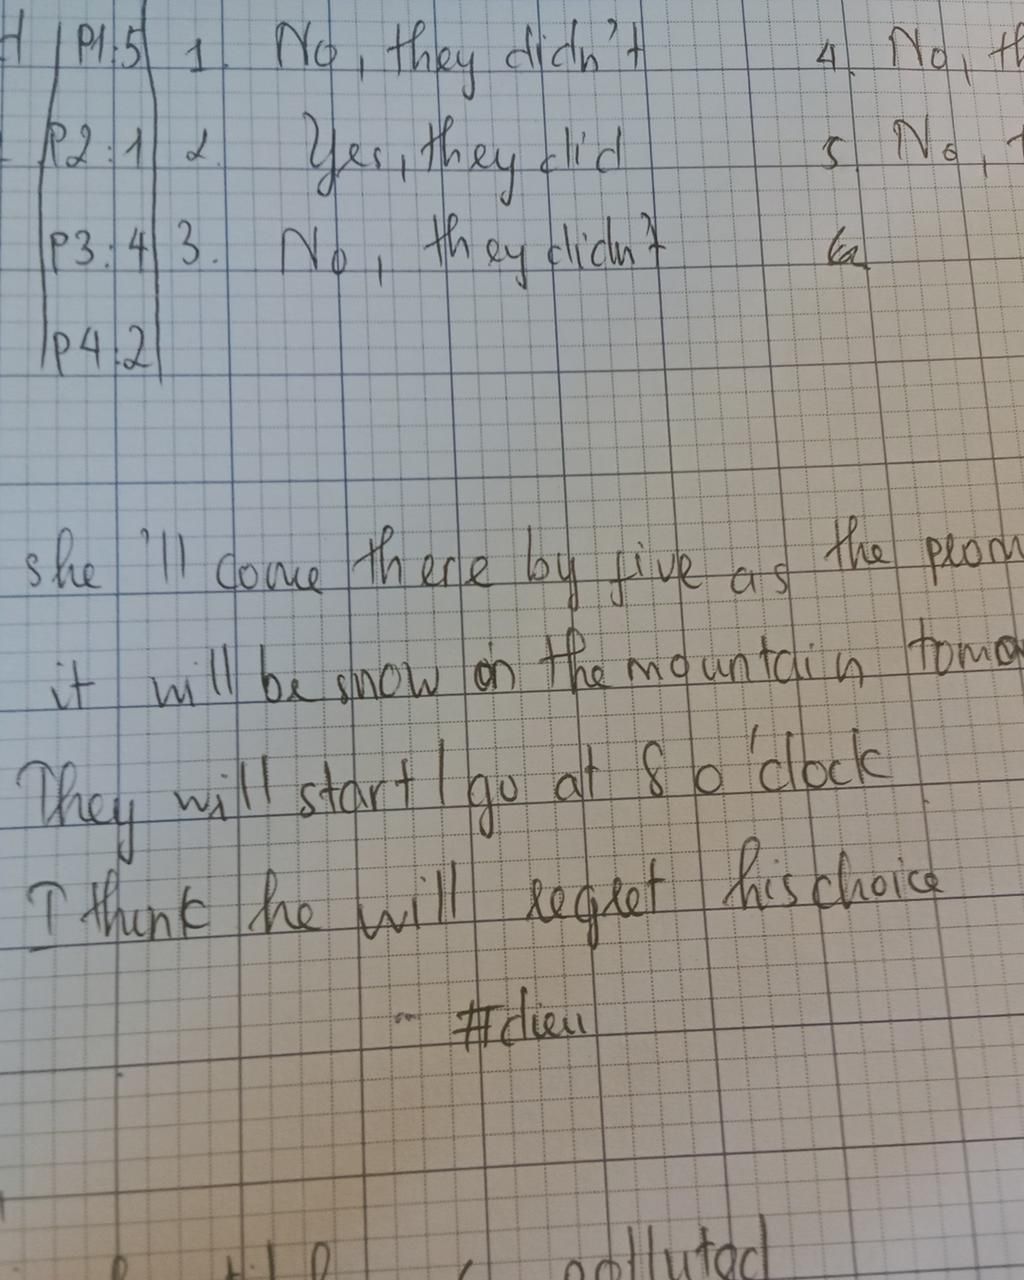 P1:5 1. No, they didn't 4. No, th
P2:1 2. Yes, they did 5 No, t
P3:4 3. No, they didn't
P4:2
she 'll come there by five as the prom
it will be snow on the mountain tomo
They will start / go at 8 o'clock
I think he will regret his choice
#dieu
polluted